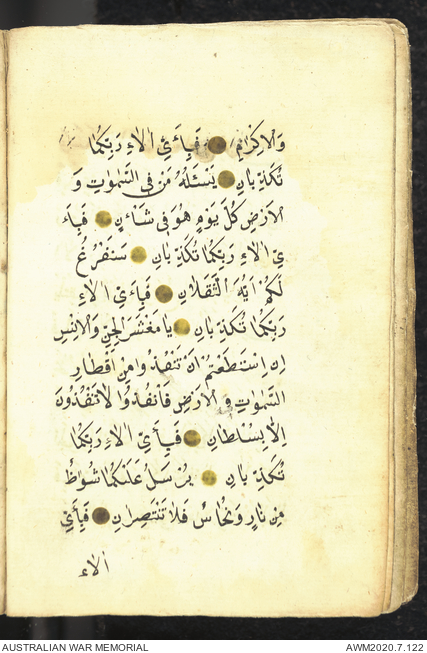 وَالْاِكْرَامِ ۝ فَبِاَىِّ اٰلَاۤءِ رَبِّكُمَا
تُكَذِّبَانِ ۝ يَسْئَلُهُ مَنْ فِى السَّمٰوَاتِ وَ
الْاَرْضِ كُلَّ يَوْمٍ هُوَ فِى شَاْنٍ ۝ فَبِاَ
ىِّ اٰلَاۤءِ رَبِّكُمَا تُكَذِّبَانِ ۝ سَنَفْرُغُ
لَكُمْ اَيُّهَ الثَّقَلَانِ ۝ فَبِاَىِّ اٰلَاۤءِ
رَبِّكُمَا تُكَذِّبَانِ ۝ يَا مَعْشَرَ الْجِنِّ وَالْاِنْسِ
اِنِ اسْتَطَعْتُمْ اَنْ تَنْفُذُوا مِنْ اَقْطَارِ
السَّمٰوَاتِ وَالْاَرْضِ فَانْفُذُوا لَا تَنْفُذُونَ
اِلَّا بِسُلْطَانٍ ۝ فَبِاَىِّ اٰلَاۤءِ رَبِّكُمَا
تُكَذِّبَانِ ۝ يُرْسَلُ عَلَيْكُمَا شُوَاظٌ
مِنْ نَارٍ وَنُحَاسٌ فَلَا تَنْتَصِرَانِ ۝ فَبِاَىِّ
اٰلَاۤءِ
AUSTRALIAN WAR MEMORIAL AWM2020.7.122